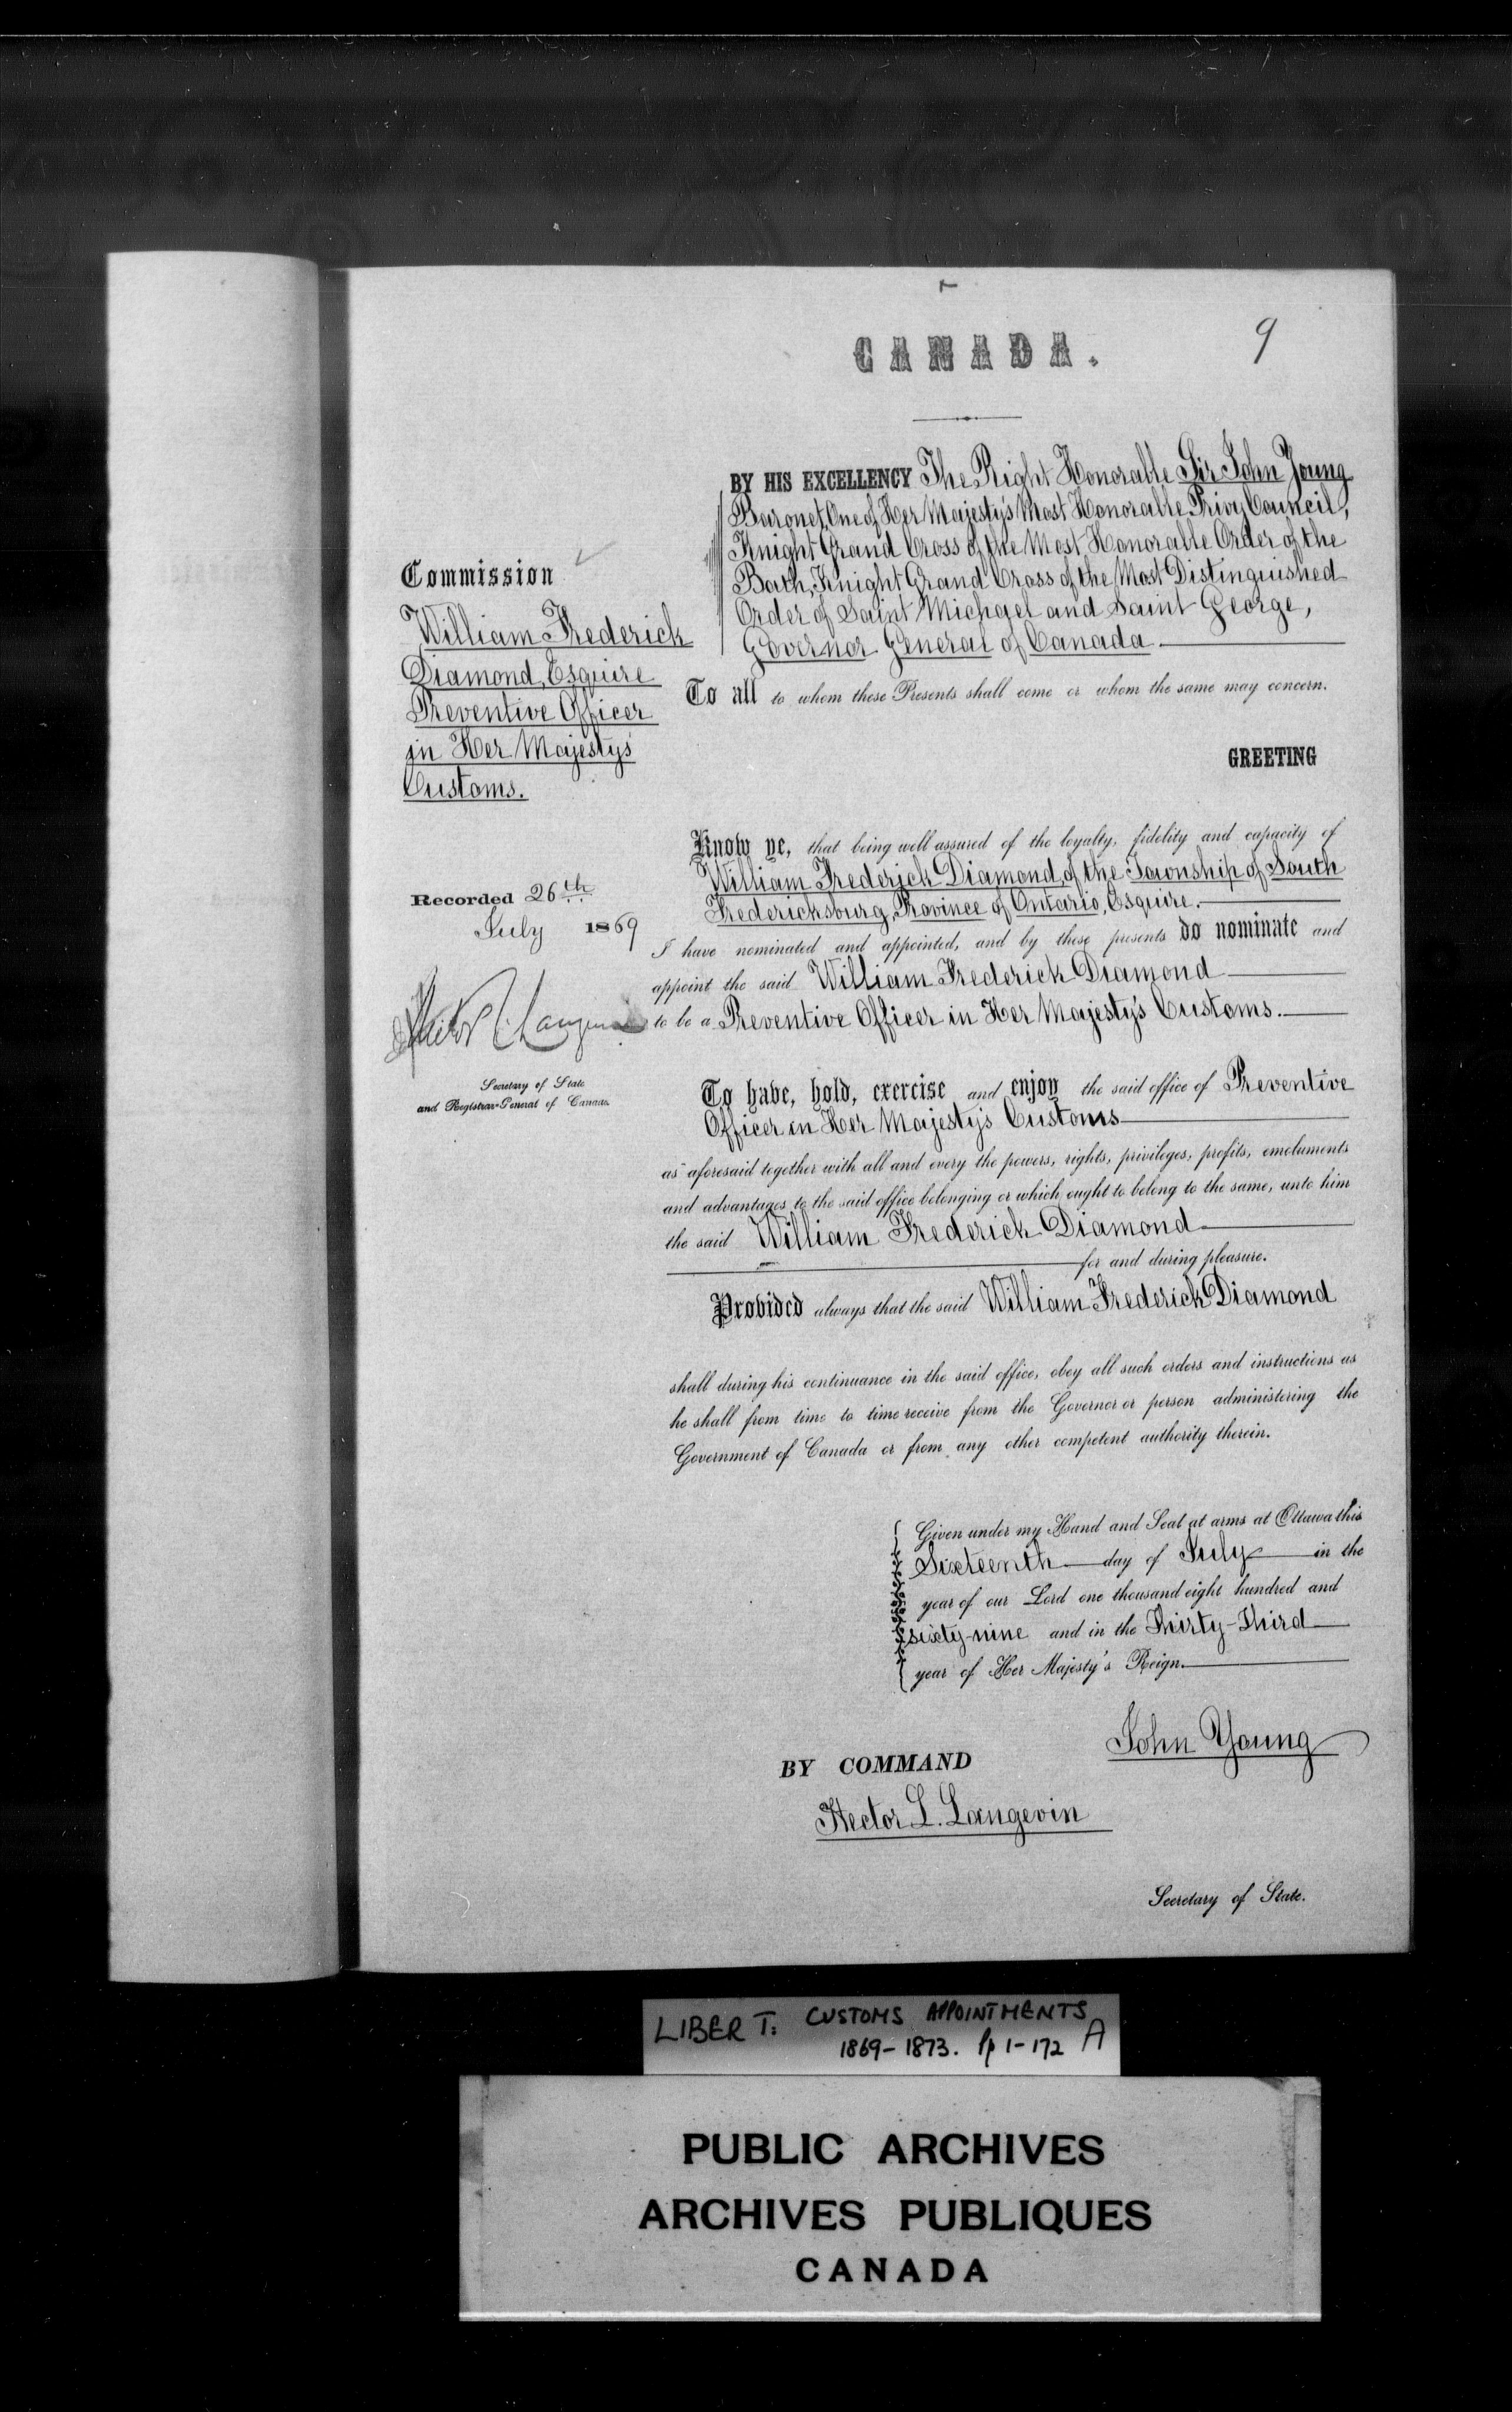 CANADA.
9
BY HIS EXCELLENCY The Right Honorable Sir John Young
Baronet, One of Her Majesty's Most Honorable Privy Council,
Knight Grand Cross of the Most Honorable Order of the
Bath, Knight Grand Cross of the Most Distinguished
Order of Saint Michael and Saint George,
Governor General of Canada
To all to whom these Presents shall come or whom the same may concern.
GREETING
Commission
William Frederick
Diamond, Esquire
Preventive Officer
in Her Majesty's
Customs.
Recorded 26th
July 1869
Hector L. Langevin
Secretary of State
and Registrar-General of Canada.
Know ye, that being well assured of the loyalty, fidelity and capacity of
William Frederick Diamond, of the Township of South
Fredericksburg, Province of Ontario, Esquire.
I have nominated and appointed, and by these presents do nominate and
appoint the said William Frederick Diamond
to be a Preventive Officer in Her Majesty's Customs.
To have, hold, exercise and enjoy the said office of Preventive
Officer in Her Majesty's Customs
as aforesaid together with all and every the powers, rights, privileges, profits, emoluments
and advantages to the said office belonging or which ought to belong to the same, unto him
the said William Frederick Diamond
for and during pleasure.
Provided always that the said William Frederick Diamond
shall during his continuance in the said office, obey all such orders and instructions as
he shall from time to time receive from the Governor or person administering the
Government of Canada or from any other competent authority therein.
Given under my Hand and Seal at arms at Ottawa this
Sixteenth day of July in the
year of our Lord one thousand eight hundred and
sixty-nine and in the Thirty-Third
year of Her Majesty's Reign.
John Young
BY COMMAND
Hector L. Langevin
Secretary of State.
LIBER T: CUSTOMS APPOINTMENTS
1869-1873. Pp 1-172 A
PUBLIC ARCHIVES
ARCHIVES PUBLIQUES
CANADA